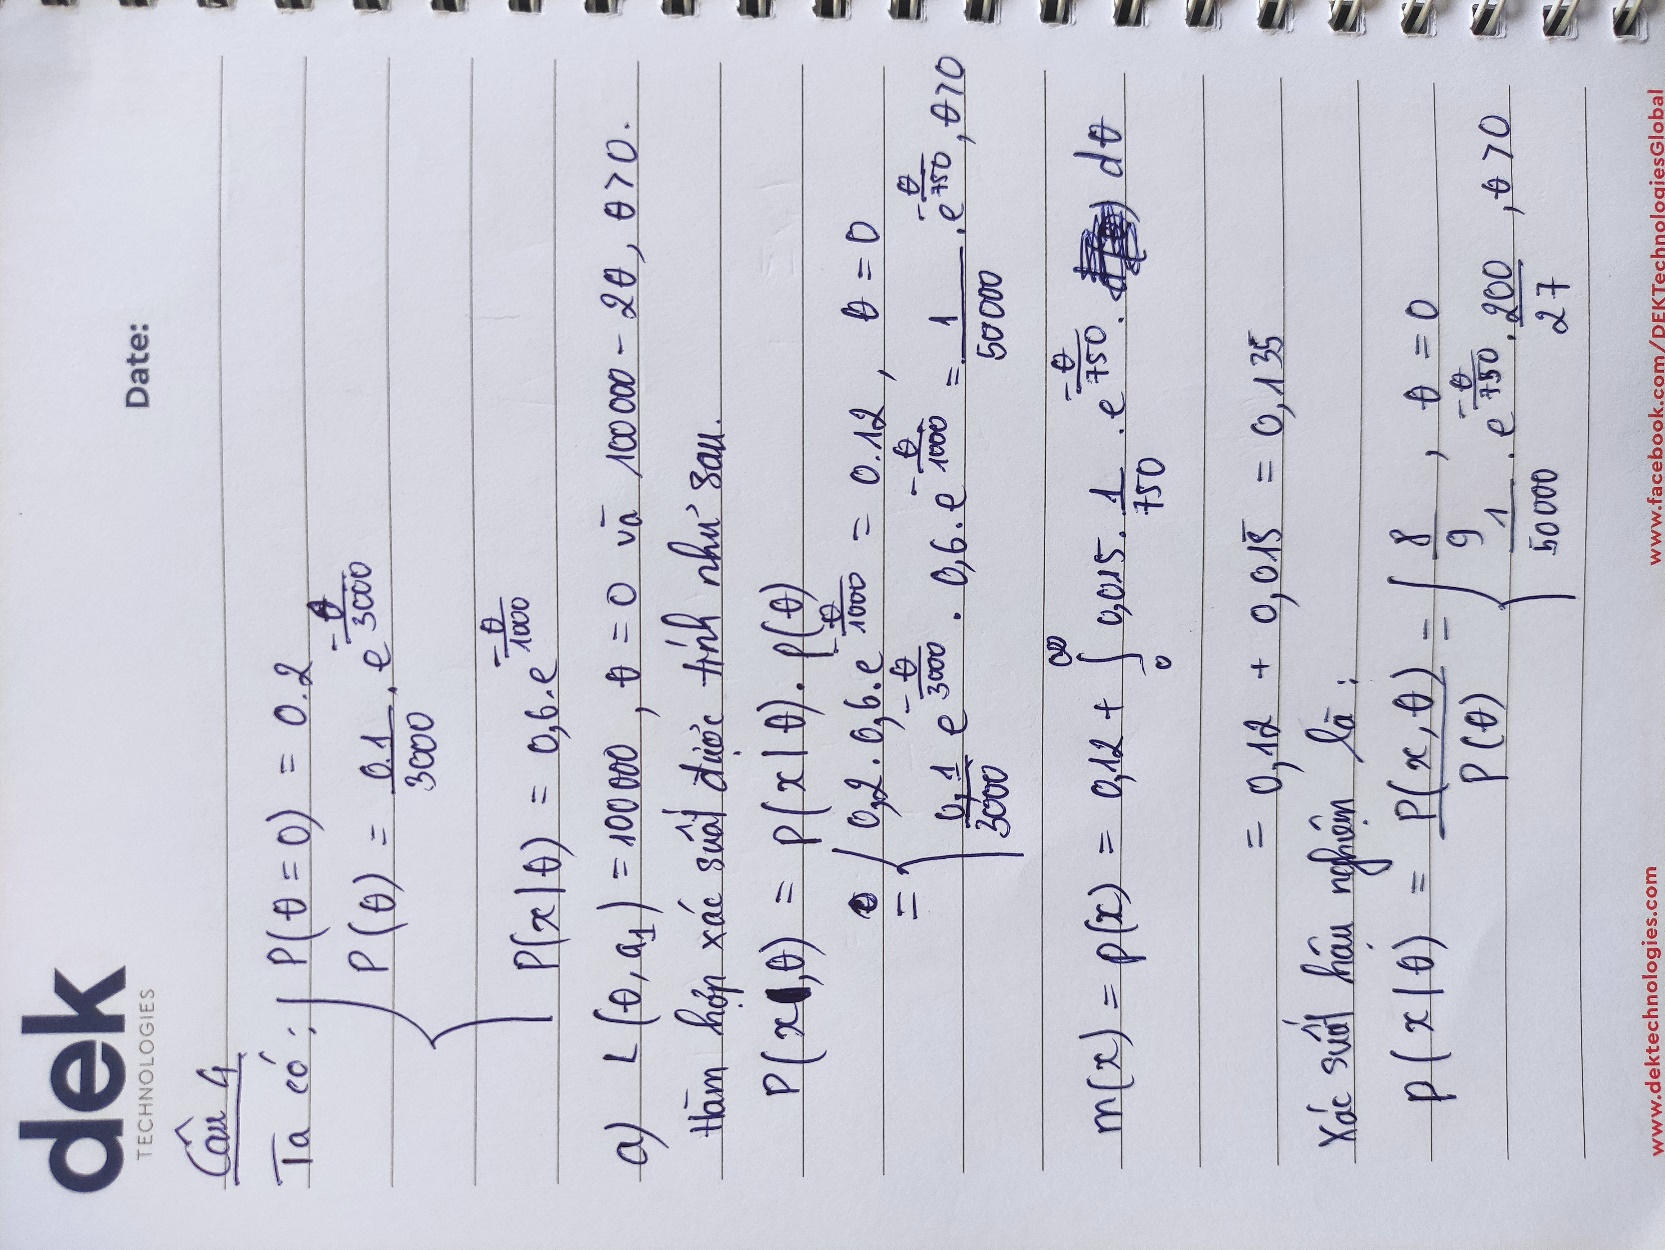 dek
TECHNOLOGIES
Date:
Câu 4
Ta có : P(θ = 0) = 0.2
P(θ) = 0.1/3000 . e^(-θ/3000)
P(x|θ) = 0,6.e^(-θ/1000)
a) L(θ, a₁) = 100000 , θ = 0 và 100000 - 2θ, θ > 0.
Hàm hợp xác suất được tính như sau.
P(x,θ) = P(x|θ). P(θ)
= { 0,2. 0,6. e^(-θ/1000) = 0.12 , θ = 0
0,1/3000 e^(-θ/3000) . 0,6. e^(-θ/1000) = 1/50000 . e^(-θ/750) , θ>0
m(x) = P(x) = 0,12 + ∫₀^∞ 0,015. 1/750 . e^(-θ/750) . dθ
= 0,12 + 0,015 = 0,135
Xác suất hậu nghiệm là :
P(x|θ) = P(x,θ)/P(θ) = { 8/9 , θ = 0
1/50000 . e^(-θ/750) . 200/27 , θ>0
www.dektechnologies.com
www.facebook.com/DEKTechnologiesGlobal